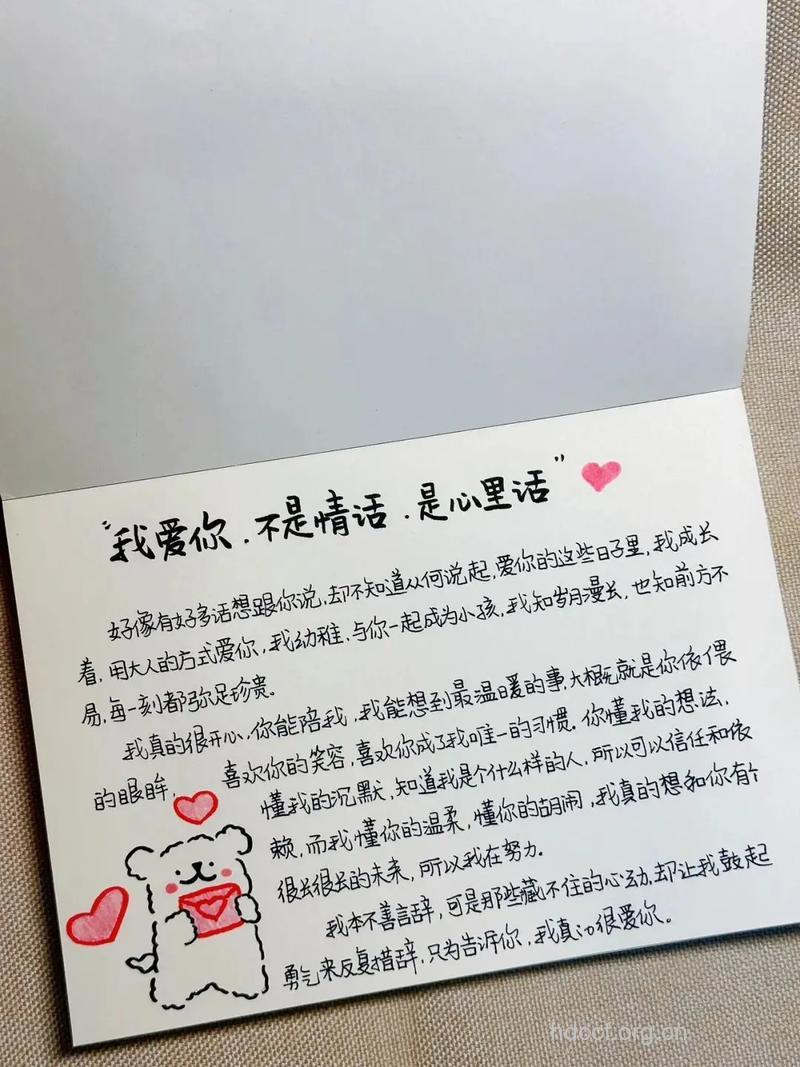 "我爱你.不是情话.是心里话"
好像有好多话想跟你说,却不知道从何说起,爱你的这些日子里,我成长
着,用大人的方式爱你,我幼稚.与你一起成为小孩,我知岁月漫长,也知前方不
易,每一刻都弥足珍贵。
我真的很开心,你能陪我,我能想到最温暖的事,大概就是你依偎
的眼眸,喜欢你的笑容,喜欢你成了我唯一的习惯.你懂我的想法,
懂我的沉默,知道我是个什么样的人,所以可以信任和依
赖,而我懂你的温柔,懂你的胡闹,我真的想和你有个
很长很长的未来,所以我在努力.
我本不善言辞,可是那些藏不住的心动.却让我鼓起
勇气来反复措辞,只为告诉你,我真的很爱你。
hdccf.org.cn